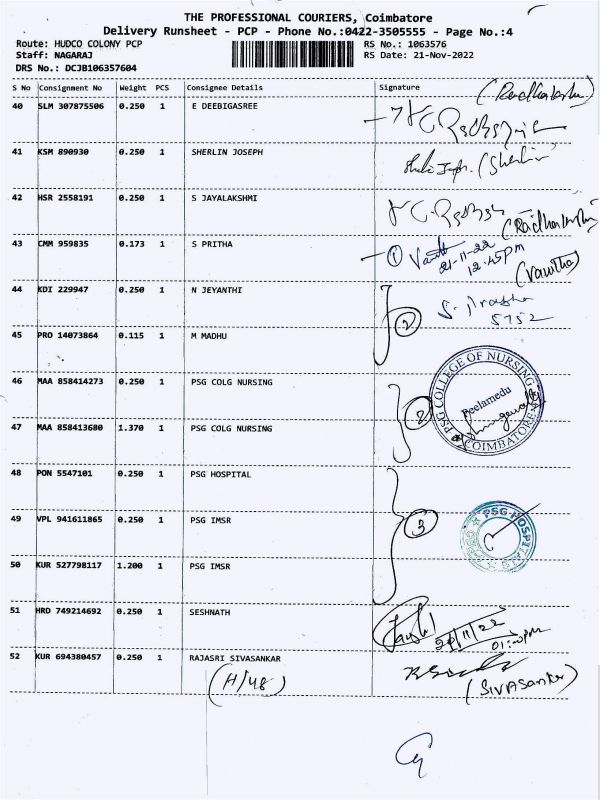 THE PROFESSIONAL COURIERS, Coimbatore
Delivery Runsheet - PCP - Phone No.:0422-3505555 - Page No.:4
Route: HUDCO COLONY PCP RS No.: 1063576
Staff: NAGARAJ RS Date: 21-Nov-2022
DRS No.: DCJB106357604
S No Consignment No Weight PCS Consignee Details Signature
40 SLM 307875506 0.250 1 E DEEBIGASREE
41 KSM 890930 0.250 1 SHERLIN JOSEPH (Sherlin)
42 HSR 2558191 0.250 1 S JAYALAKSHMI
43 CMM 959835 0.173 1 S PRITHA 1
21-11-22
12:45pm
(Vanitha)
44 KDI 229947 0.250 1 N JEYANTHI
5752
2
45 PRO 14073864 0.115 1 M MADHU
46 MAA 858414273 0.250 1 PSG COLG NURSING
PSG COLLEGE OF NURSING
Peelamedu
COIMBATORE
47 MAA 858413680 1.370 1 PSG COLG NURSING
48 PON 5547101 0.250 1 PSG HOSPITAL
49 VPL 941611865 0.250 1 PSG IMSR 3
PSG HOSPITALS
50 KUR 527798117 1.200 1 PSG IMSR
51 HRD 749214692 0.250 1 SESHNATH
52 KUR 694380457 0.250 1 RAJASRI SIVASANKAR
(H/48) (SIVASankar)